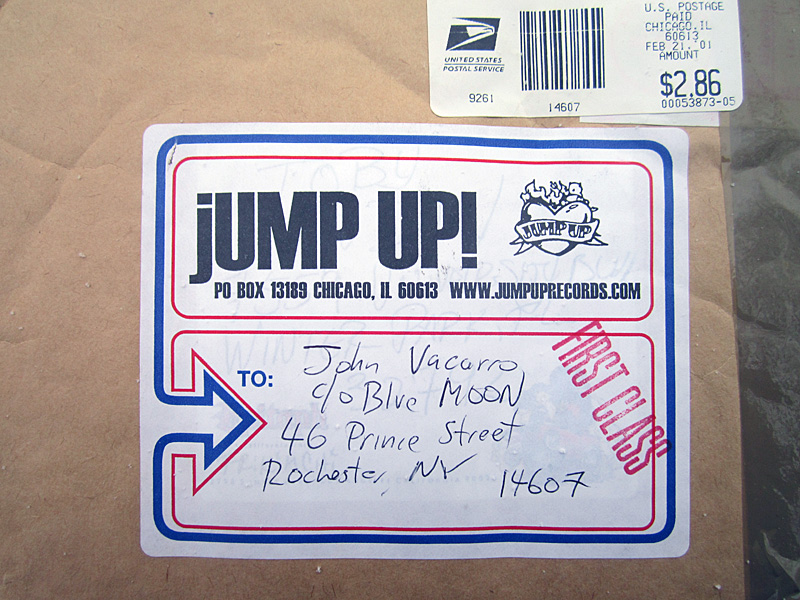 U.S. POSTAGE
PAID
CHICAGO, IL
60613
FEB 21, 01
AMOUNT
$2.86
00053873-05
UNITED STATES
POSTAL SERVICE
9261
14607
jUMP UP!
JUMP UP
PO BOX 13189 CHICAGO, IL 60613 WWW.JUMPUPRECORDS.COM
TO:
John Vacarro
c/o Blue MOON
46 Prince Street
Rochester, NY 14607
FIRST CLASS